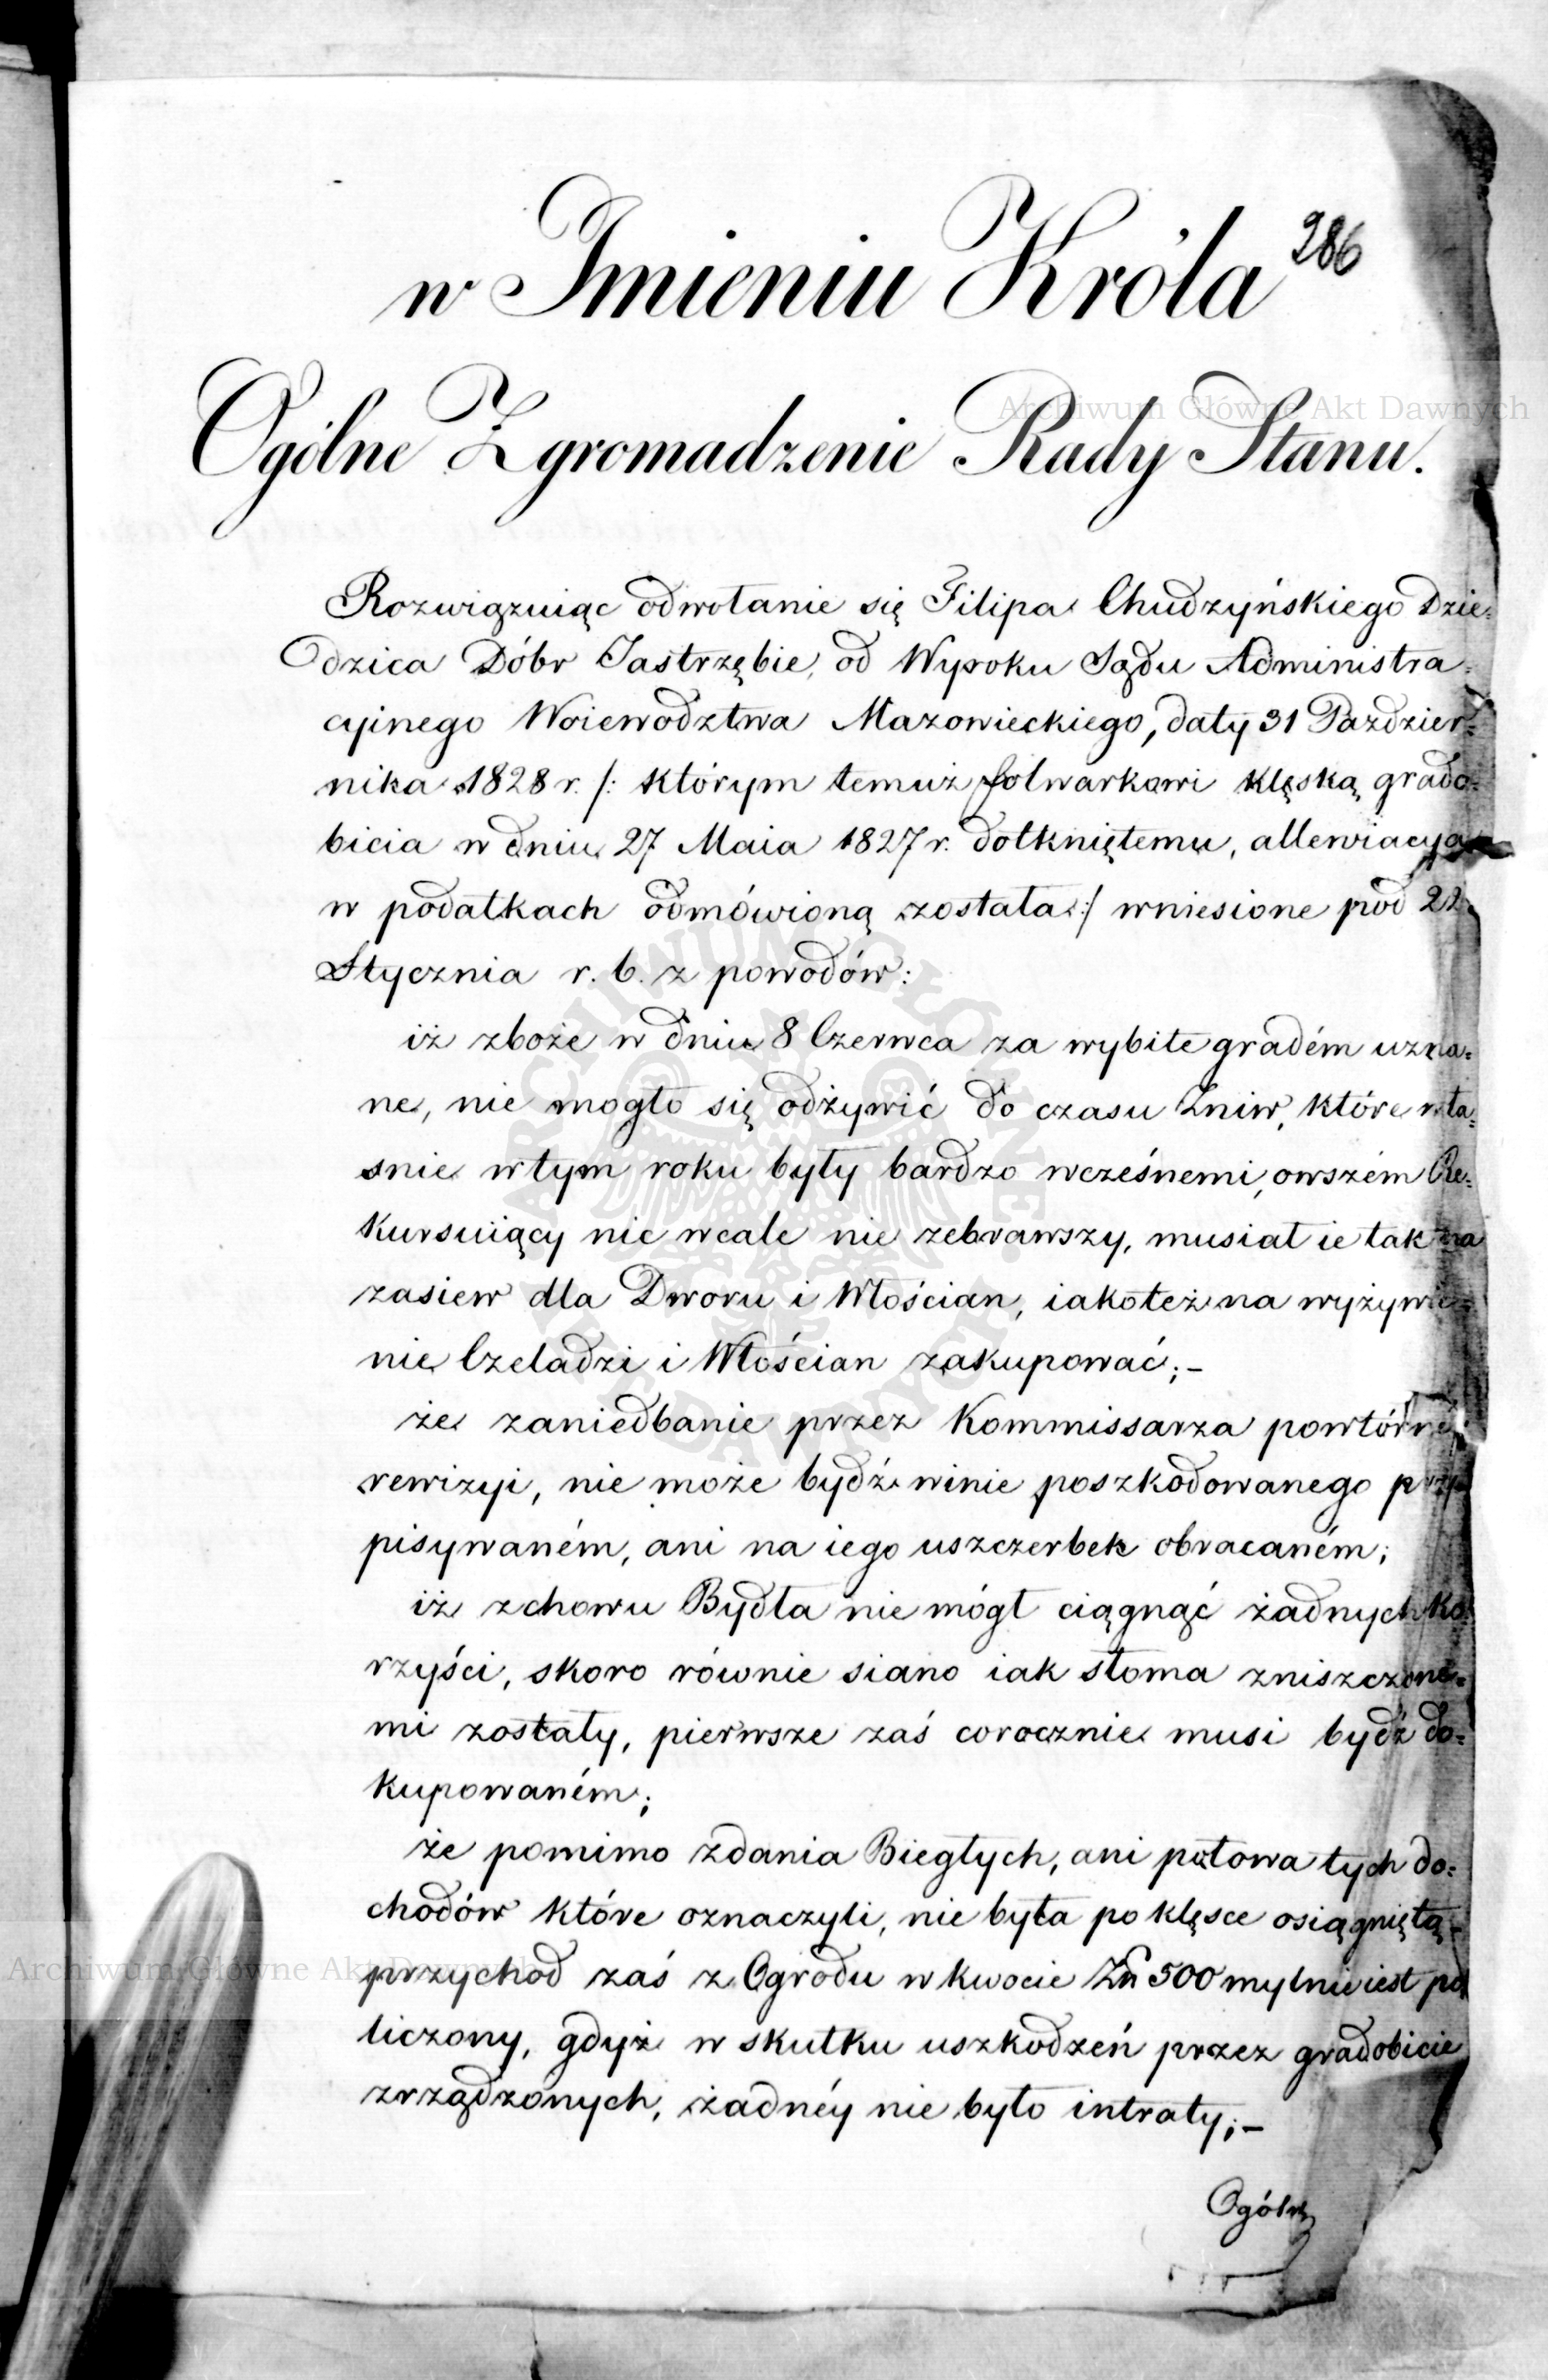 286
w Imieniu Króla
Ogólne Zgromadzenie Rady Stanu.
Rozwiązuiąc odwołanie się Filipa Chudzyńskiego Dzie=
dzica Dóbr Jastrzębie, od Wyroku Sądu Administra=
cyinego Woiewodztwa Mazowieckiego, daty 31 Pazdzier=
nika 1828 r. /: którym temuż folwarkowi klęską grado=
bicia w dniu 27 Maia 1827 r. dotkniętemu, allewiacya
w podatkach odmówioną została :/ wniesione pod 22
Stycznia r. b. z powodów:
iż zboże w dniu 8 Czerwca za wybite gradém uzna=
ne, nie mogło się odżywić do czasu Żniw, które wła=
snie w tym roku były bardzo wcześnemi, owszém Re=
kursuiący nic wcale nie zebrawszy, musiał ie tak na
zasiew dla Dworu i Włościan, iakoteż na wyżywie=
nie Czeladzi i Włościan zakupować; –
że zaniedbanie przez Kommissarza powtórnéy
rewizyi, nie może bydź winie poszkodowanego przy
pisywaném, ani na iego uszczerbek obracaném;
iż z chowu Bydła nie mógł ciągnąć żadnych ko=
rzyści, skoro równie siano iak słoma zniszczone=
mi zostały, pierwsze zaś corocznie musi bydź do=
kupowaném;
że pomimo zdania Biegłych, ani połowa tych do=
chodów które oznaczyli, nie była po klęsce osiągniętą –
przychod zaś z Ogrodu w kwocie Zł 500 mylnie iest po
liczony, gdyż w skutku uszkodzeń przez gradobicie
zrządzonych, żadnéy nie było intraty; –
Ogólne
Archiwum Główne Akt Dawnych
ARCHIWUM GŁÓWNE AKT DAWNYCH
Archiwum Główne Akt Dawnych